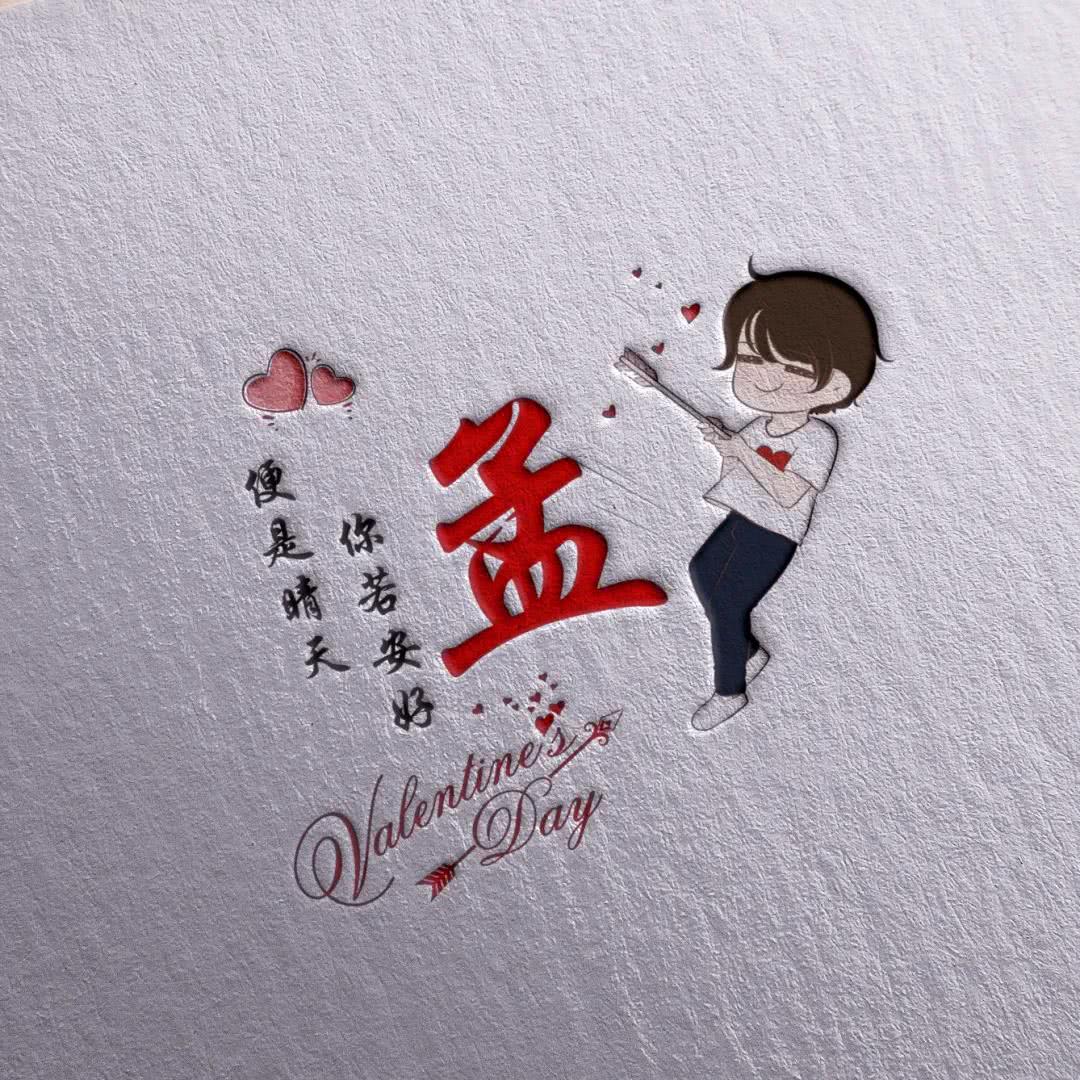 你若安好
便是晴天
孟
Valentine's
Day